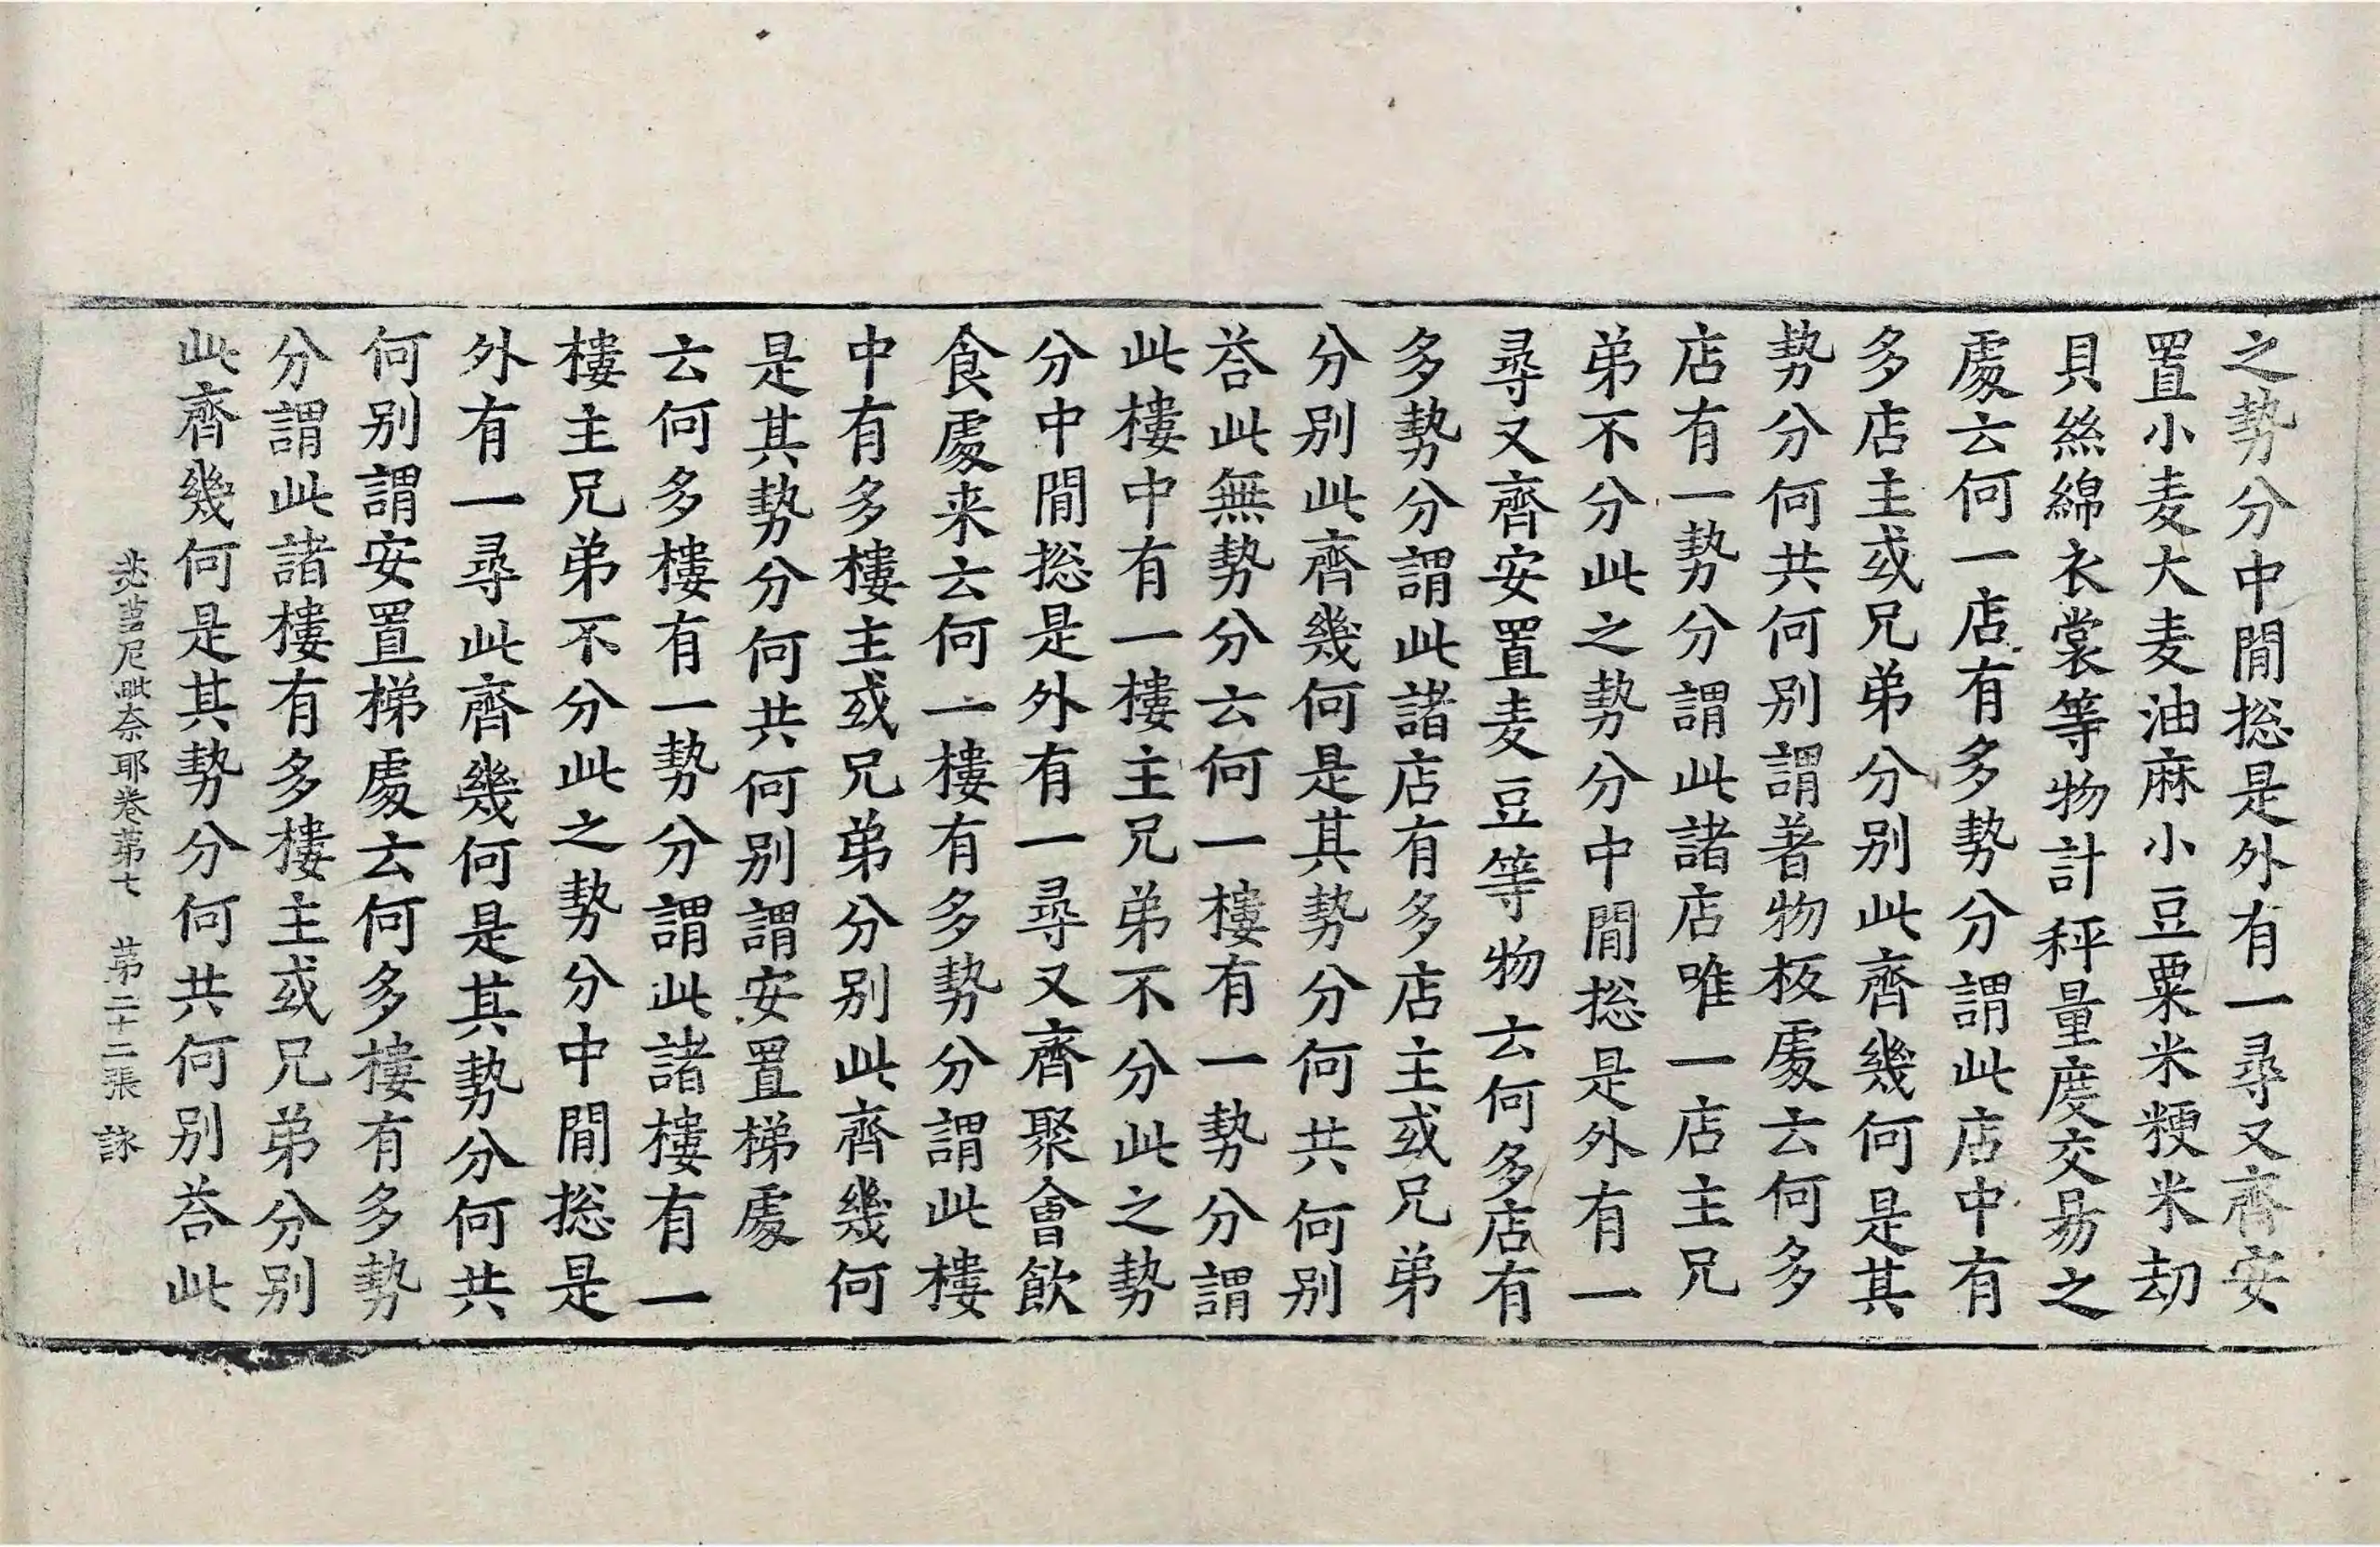 之勢分中閒捴是外有一尋又齊安
置小麦大麦油麻小豆粟米粳米劫
貝絲綿衣裳等物計秤量度交易之
處云何一店有多勢分謂此店中有
多店主或兄弟分別此齊幾何是其
勢分何共何別謂著物板處云何多
店有一勢分謂此諸店唯一店主兄
弟不分此之勢分中閒捴是外有一
尋又齊安置麦豆等物云何多店有
多勢分謂此諸店有多店主或兄弟
分別此齊幾何是其勢分何共何別
荅此無勢分云何一樓有一勢分謂
此樓中有一樓主兄弟不分此之勢
分中閒捴是外有一尋又齊聚會飲
食處来云何一樓有多勢分謂此樓
中有多樓主或兄弟分別此齊幾何
是其勢分何共何別謂安置梯處
云何多樓有一勢分謂此諸樓有一
樓主兄弟不分此之勢分中閒捴是
外有一尋此齊幾何是其勢分何共
何別謂安置梯處云何多樓有多勢
分謂此諸樓有多樓主或兄弟分別
此齊幾何是其勢分何共何別荅此
苾蒭尼毗奈耶卷苐七 苐二十二張 詠